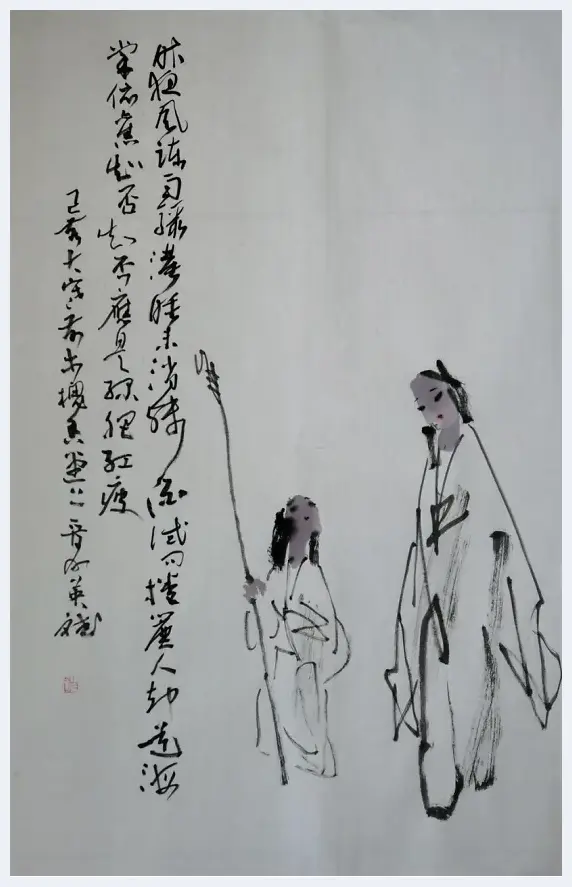 昨夜風疎雨驟濃睡未消殘酒試問捲簾人却道海
棠依舊知否知否應是綠肥紅瘦
己亥大寒前